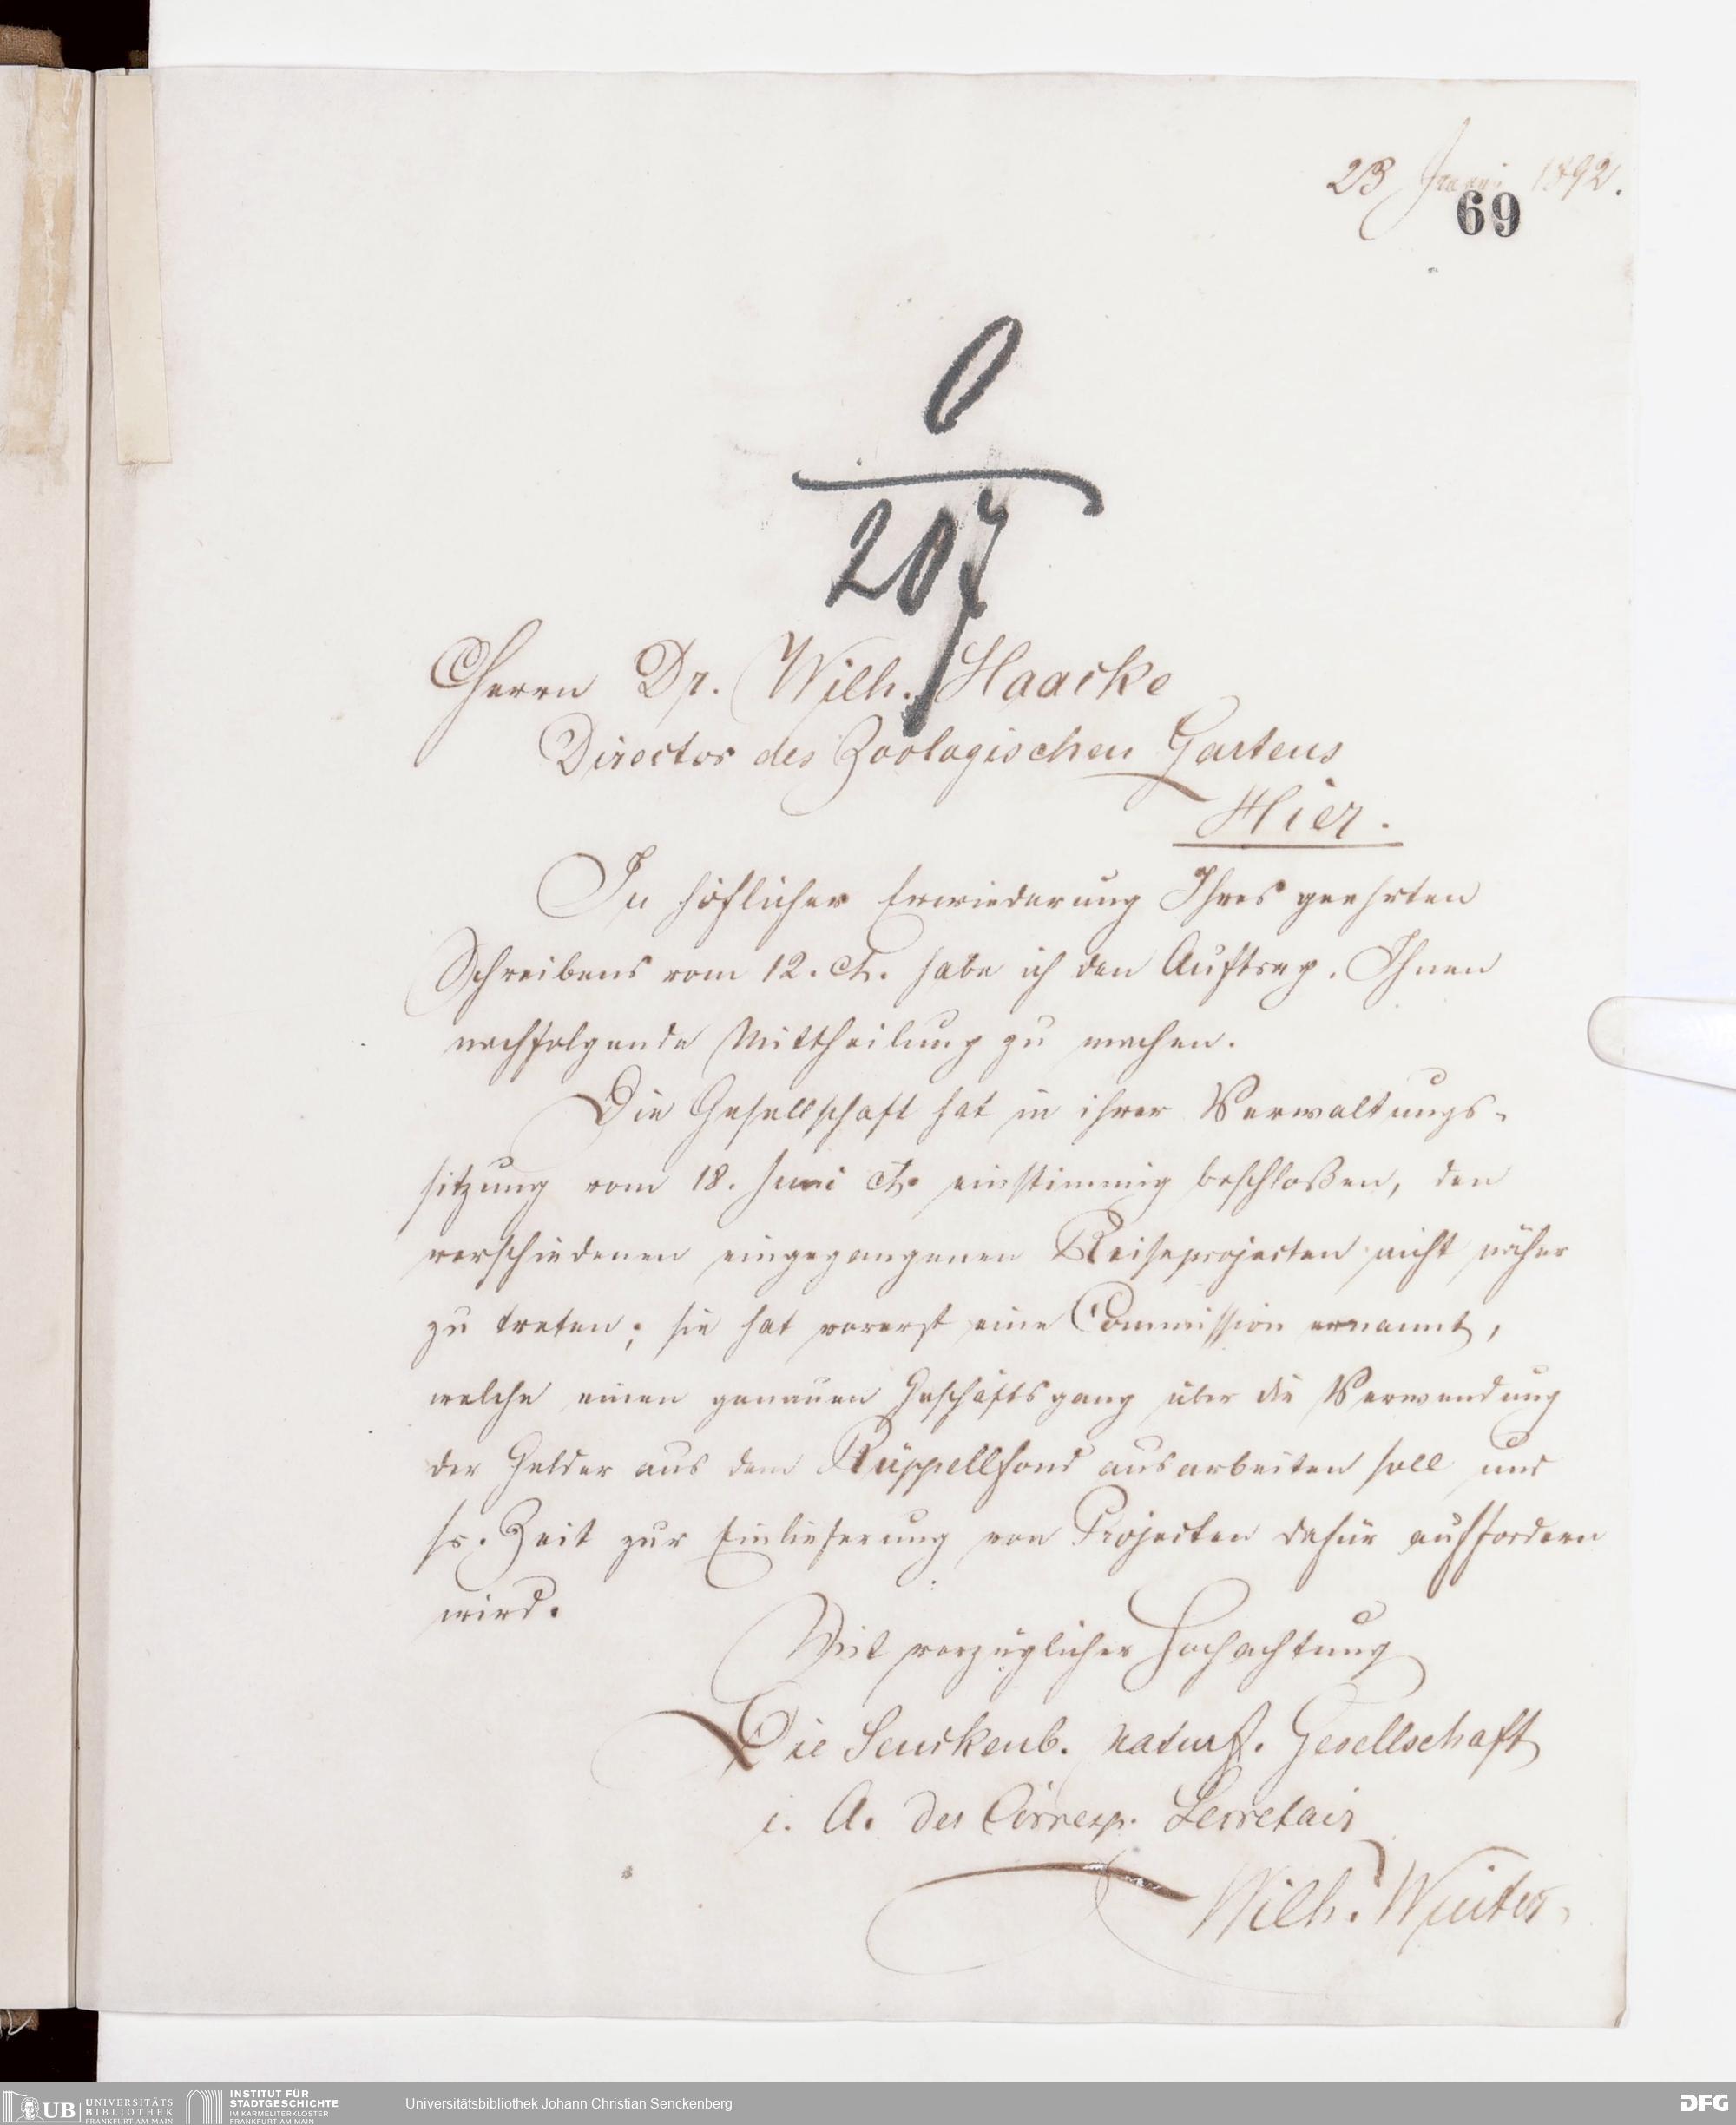 23 Juni 1892.
69
0
207
Herrn Dr. Wilh. Haacke
Director des Zoologischen Gartens
Hier.
In höflicher Erwiederung Ihres geehrten
Schreibens vom 12. ct. habe ich den Auftrag, Ihnen
nachfolgende Mittheilung zu machen.
Die Gesellschaft hat in ihrer Verwaltungs-
sitzung vom 18. Juni ct. einstimmig beschloßen, den
verschiedenen eingegangenen Reiseprojecten nicht näher
zu treten; sie hat vorerst eine Commission ernannt,
welche einen genauen Geschäftsgang über die Verwendung
der Gelder aus dem Rüppellfond ausarbeiten soll und
sr. Zeit zur Einlieferung von Projecten dafür auffordern
wird.
Mit vorzüglicher Hochachtung
Die Senckenb. naturf. Gesellschaft
i. A. der Corresp. Secretair
Wilh. Winter
UB UNIVERSITÄTS BIBLIOTHEK FRANKFURT AM MAIN
INSTITUT FÜR STADTGESCHICHTE IM KARMELITERKLOSTER FRANKFURT AM MAIN
Universitätsbibliothek Johann Christian Senckenberg
DFG